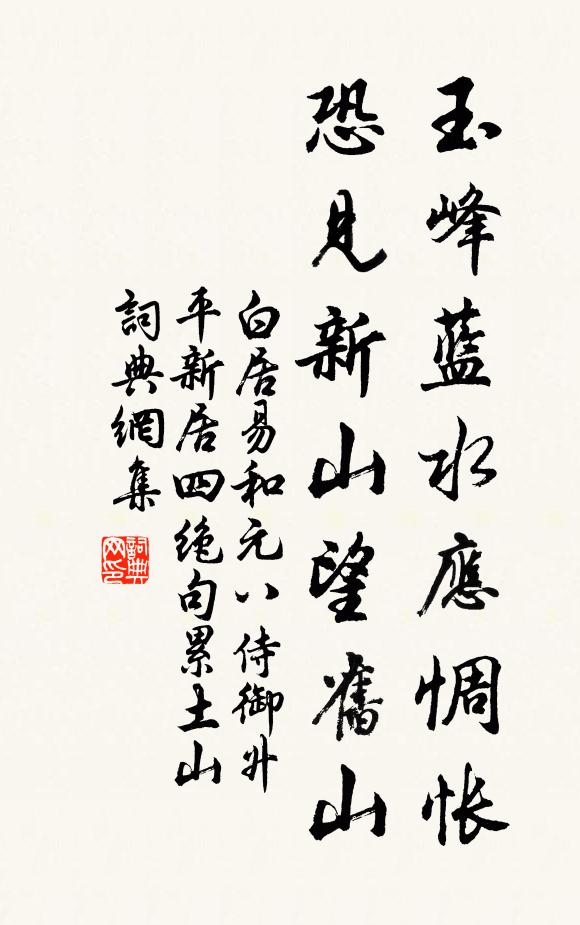 玉峰藍水應惆悵
恐見新山望舊山
白居易和元八侍御升
平新居四绝句累土山
詞典網集
詞典
网印